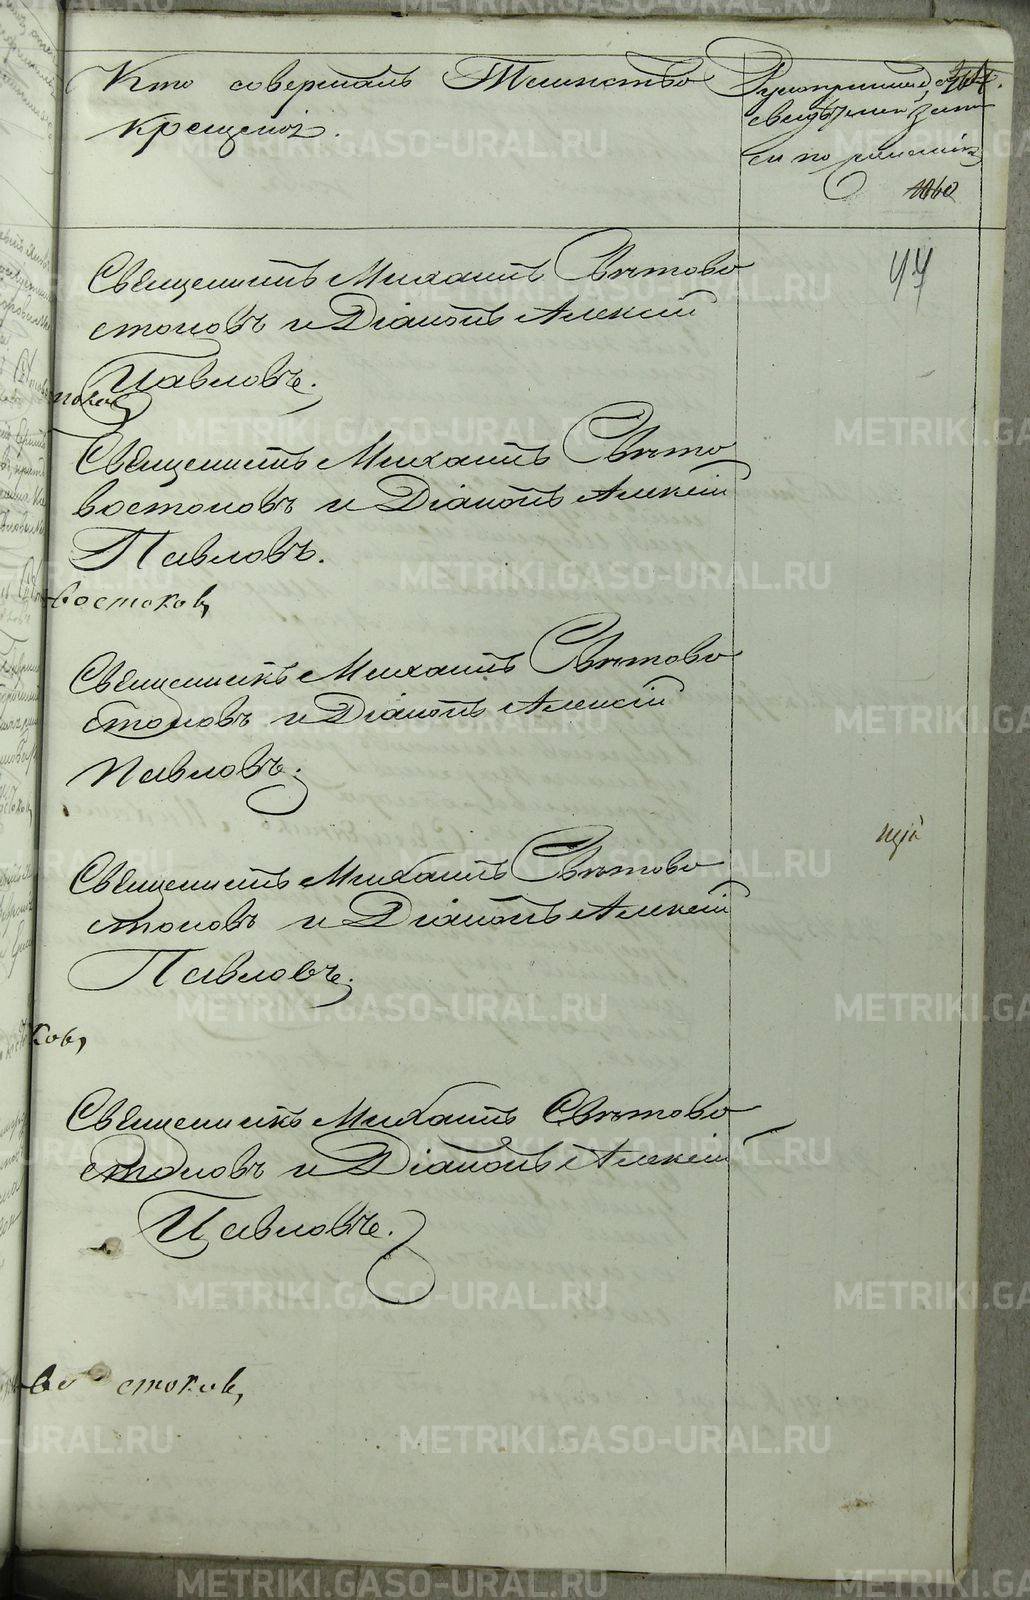 Кто совершалъ Таинство
крещенія.
Рукоприкладство
свидѣтелей записи
по желанію
Священникъ Михаилъ Свѣтово
стоковъ и Діаконъ Алексій
Павловъ.
Священникъ Михаилъ Свѣто
востоковъ и Діаконъ Алексій
Павловъ.
востоковъ
Священникъ Михаилъ Свѣтово
стоковъ и Діаконъ Алексій
Павловъ.
Священникъ Михаилъ Свѣтово
стоковъ и Діаконъ Алексій
Павловъ.
ковъ
Священникъ Михаилъ Свѣтово
стоковъ и Діаконъ Алексій
Павловъ.
во стоковъ
METRIKI.GASO-URAL.RU